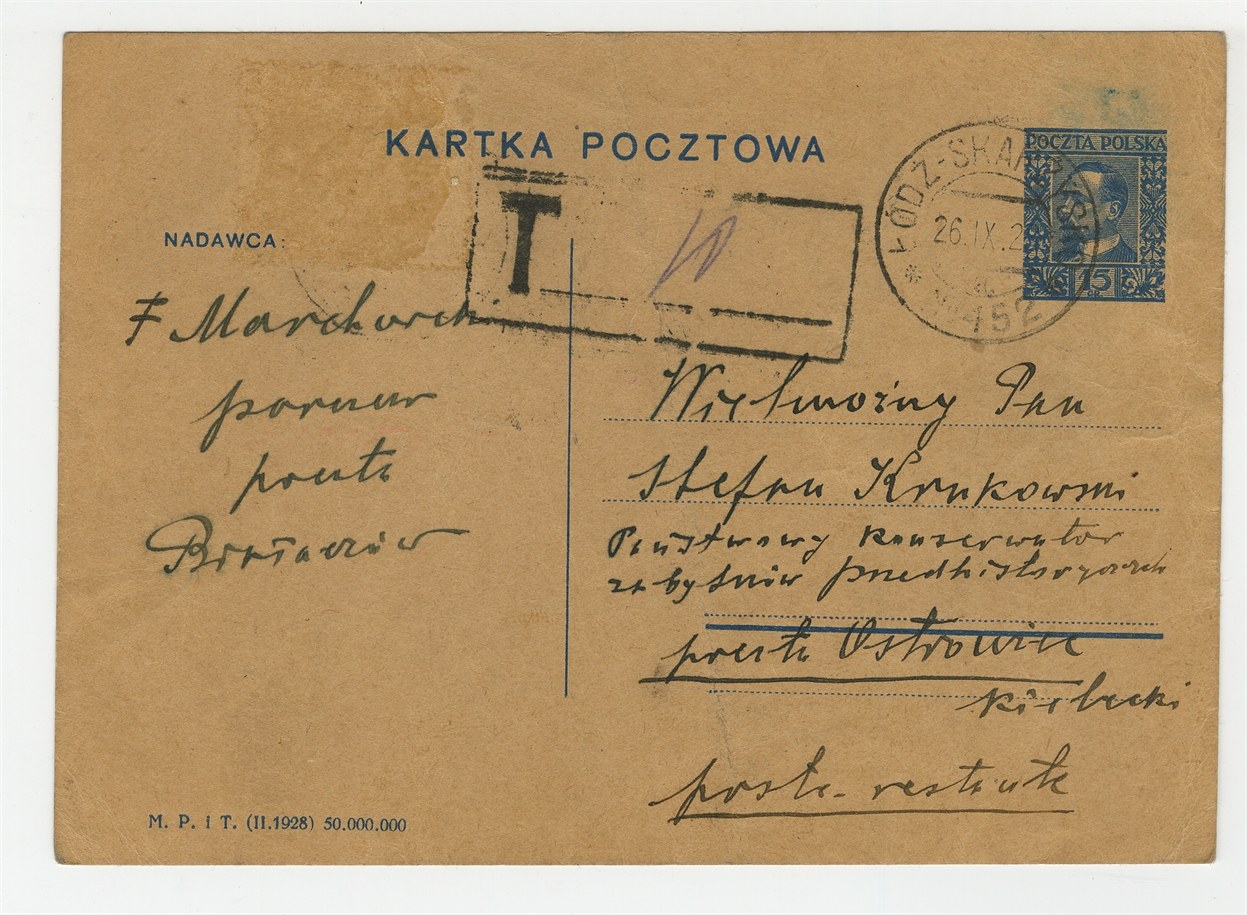 KARTKA POCZTOWA
POCZTA POLSKA
26.IX.2
15
452
T
10
NADAWCA:
F Marchwich
poczta
Wielmożny Pan
Stefan Krukowski
Państwowy Konserwator
zabytków przedhistorycznych
poczta Ostrowiec
kielecki
poste-restante
M. P. i T. (II.1928) 50.000.000